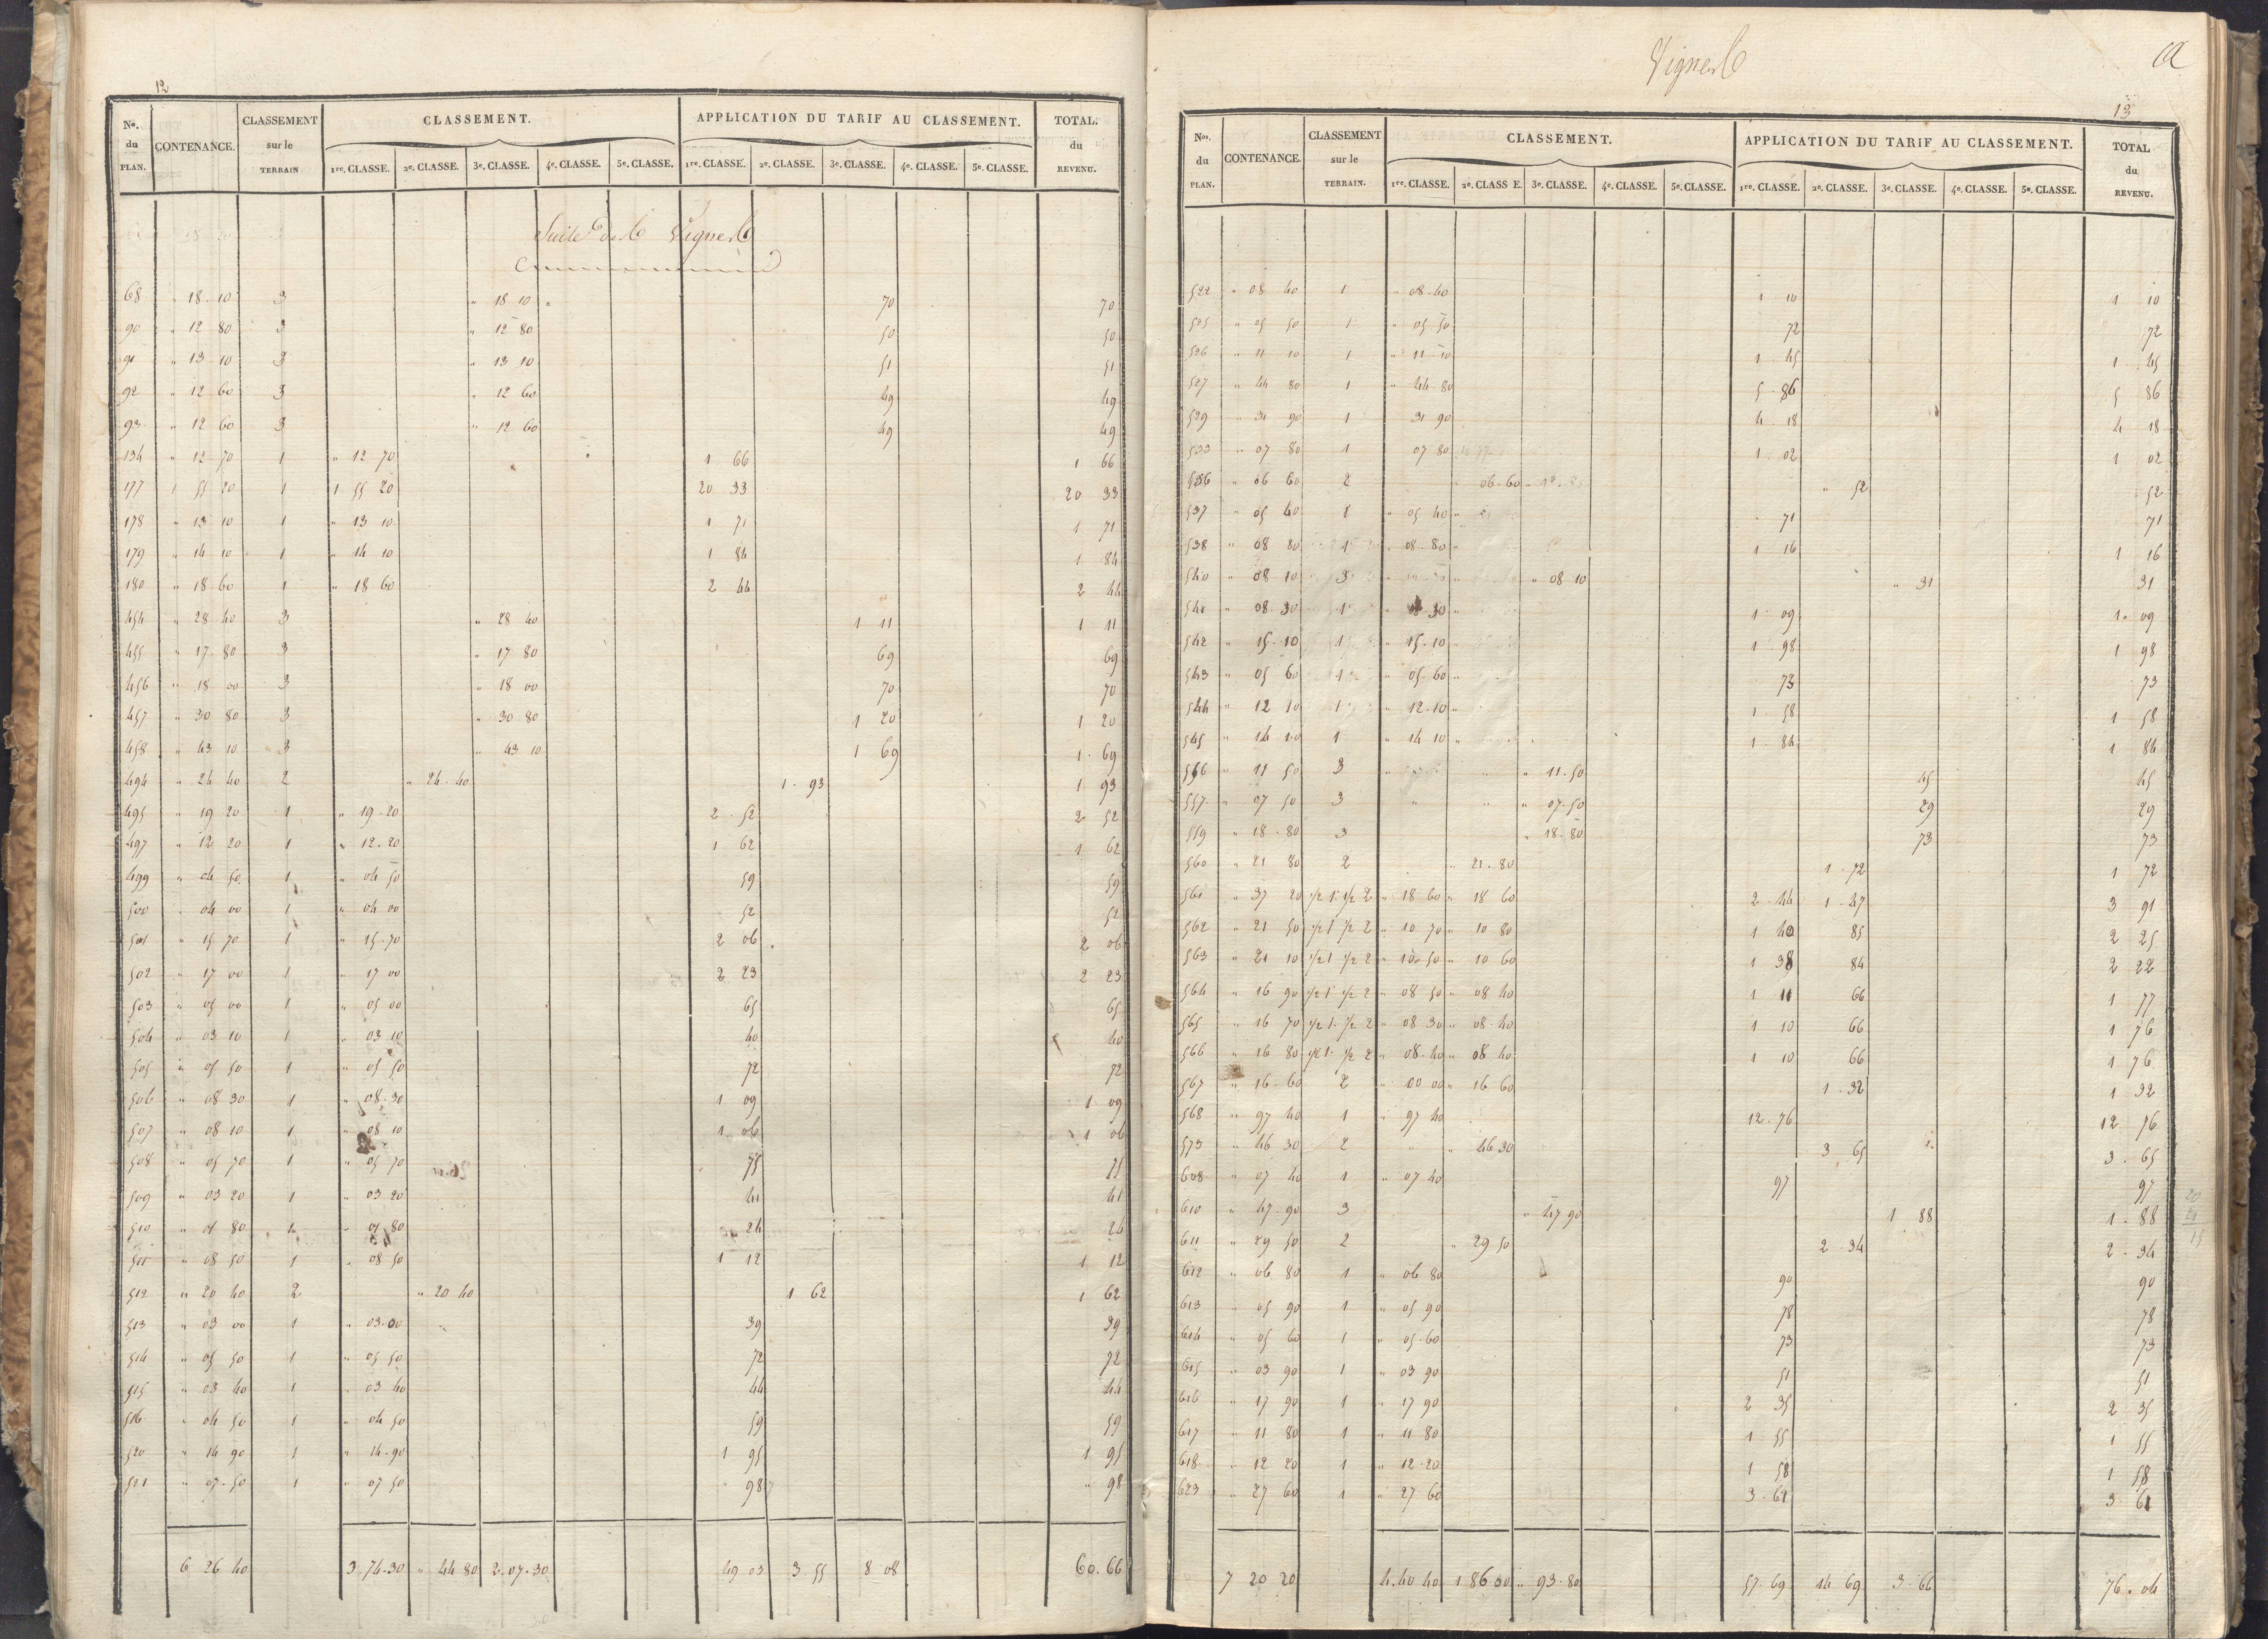 12
Nos. du PLAN. CONTENANCE. CLASSEMENT sur le TERRAIN CLASSEMENT. APPLICATION DU TARIF AU CLASSEMENT. TOTAL. du REVENU.
1re. CLASSE. 2e. CLASSE. 3e. CLASSE. 4e. CLASSE. 5e. CLASSE. 1re. CLASSE. 2e. CLASSE. 3e. CLASSE. 4e. CLASSE. 5e. CLASSE.
Suite de la Vigne
68 " 18 10 3 " 18 10 70 70
90 " 12 80 3 " 12 80 50 50
91 " 13 10 3 " 13 10 51 51
92 " 12 60 3 " 12 60 49 49
93 " 12 60 3 " 12 60 49 49
134 " 12 70 1 " 12 70 1 66 1 66
177 1 55 20 1 1 55 20 20 33 20 33
178 " 13 10 1 " 13 10 1 71 1 71
179 " 14 10 1 " 14 10 1 84 1 84
180 " 18 60 1 " 18 60 2 44 2 44
454 " 28 40 3 " 28 40 1 11 1 11
455 " 17 80 3 " 17 80 69 69
456 " 18 00 3 " 18 00 70 70
457 " 30 80 3 " 30 80 1 20 1 20
458 " 43 10 3 " 43 10 1 69 1 69
494 " 24 40 2 " 24 40 1 93 1 93
495 " 19 20 1 " 19 20 2 52 2 52
497 " 12 20 1 " 12 20 1 62 1 62
499 " 04 50 1 " 04 50 59 59
500 " 04 00 1 " 04 00 52 52
501 " 15 70 1 " 15 70 2 06 2 06
502 " 17 00 1 " 17 00 2 23 2 23
503 " 05 00 1 " 05 00 65 65
504 " 03 10 1 " 03 10 40 40
505 " 05 50 1 " 05 50 72 72
506 " 08 30 1 " 08 30 1 09 1 09
507 " 08 10 1 " 08 10 1 06 1 06
508 " 05 70 1 " 05 70 75 75
509 " 03 20 1 " 03 20 41 41
510 " 01 80 1 " 01 80 24 24
511 " 08 50 1 " 08 50 1 12 1 12
512 " 20 40 2 " 20 40 1 62 1 62
513 " 03 00 1 " 03 00 39 39
514 " 05 50 1 " 05 50 72 72
515 " 03 40 1 " 03 40 44 44
516 " 04 50 1 " 04 50 59 59
520 " 14 90 1 " 14 90 1 95 1 95
521 " 07 50 1 " 07 50 98 " 98
6 26 40 3.74.30 " 44 80 2.07.30 49 03 3.55 8 08 60.66
Vigne
13
Nos. du PLAN. CONTENANCE. CLASSEMENT sur le TERRAIN. CLASSEMENT. APPLICATION DU TARIF AU CLASSEMENT. TOTAL du REVENU.
1re. CLASSE. 2e. CLASS E. 3e. CLASSE. 4e. CLASSE. 5e. CLASSE. 1re. CLASSE. 2e. CLASSE. 3e. CLASSE. 4e. CLASSE. 5e. CLASSE.
522 " 08 40 1 " 08 40 1 10 1 10
525 " 05 50 1 " 05 50 72 72
526 " 11 10 1 " 11 10 1 45 1 45
527 " 44 80 1 " 44 80 5 86 5 86
529 " 31 90 1 31 90 4 18 4 18
533 " 07 80 1 07 80 1 02 1 02
536 " 06 60 2 " 06 60 " 52 52
537 " 05 40 1 " 05 40 71 71
538 " 08 80 1 " 08 80 1 16 1 16
540 " 08 10 3 " 08 10 " 31 31
541 " 08 30 1 " 08 30 1 09 1 09
542 " 15 10 1 " 15 10 1 98 1 98
543 " 05 60 1 " 05 60 73 73
544 " 12 10 1 " 12 10 1 58 1 58
545 " 14 10 1 " 14 10 1 84 1 84
556 " 11 50 3 " 11 50 45 45
557 " 07 50 3 " 07 50 29 29
559 " 18 80 3 " 18 80 73 73
560 " 21 80 2 " 21 80 1 72 1 72
561 " 37 20 1/2 1 1/2 2 " 18 60 " 18 60 2 44 1 47 3 91
562 " 21 50 1/2 1 1/2 2 " 10 70 " 10 80 1 40 85 2 25
563 " 21 10 1/2 1 1/2 2 " 10 50 " 10 60 1 38 84 2 22
564 " 16 90 1/2 1 1/2 2 " 08 50 " 08 40 1 11 66 1 77
565 " 16 70 1/2 1 1/2 2 " 08 30 " 08 40 1 10 66 1 76
566 " 16 80 1/2 1 1/2 2 " 08 40 " 08 40 1 10 66 1 76
567 " 16 60 2 " 00 00 " 16 60 1 32 1 32
568 " 97 40 1 " 97 40 12 76 12 76
573 " 46 30 2 " " 46 30 3 65 3 65
608 " 07 40 1 " 07 40 97 97
610 " 47 90 3 " 47 90 1 88 1 88
611 " 29 50 2 " 29 50 2 34 2 34
612 " 06 80 1 " 06 80 90 90
613 " 05 90 1 " 05 90 78 78
614 " 05 60 1 " 05 60 73 73
615 " 03 90 1 " 03 90 51 51
616 " 17 90 1 " 17 90 2 35 2 35
617 " 11 80 1 " 11 80 1 55 1 55
618 " 12 20 1 " 12 20 1 58 1 58
623 " 27 60 1 " 27 60 3 61 3 61
7 20 20 4.40 40 1 86 00 " 93 80 57 69 14 69 3 66 76.04